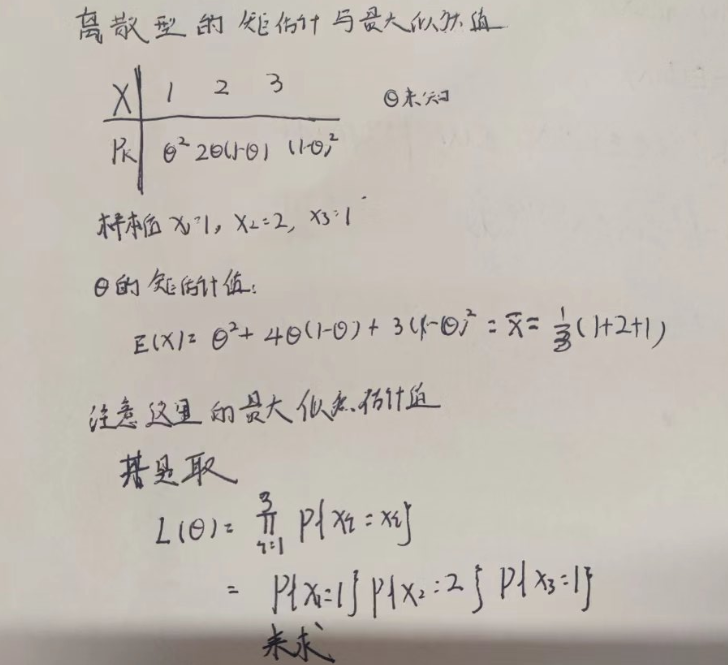 离散型的矩估计与最大似然值
X 1 2 3 θ未知
Pk θ² 2θ(1-θ) (1-θ)²
样本值 x₁=1, x₂=2, x₃=1
θ的矩估计值:
E(X)= θ²+4θ(1-θ)+3(1-θ)² = x̄ = 1/3(1+2+1)
注意这里的最大似然估计值
其是取
L(θ)= ∏ᵢ₌₁³ P{Xᵢ=xᵢ}
= P{X₁=1} P{X₂=2} P{X₃=1}
来求